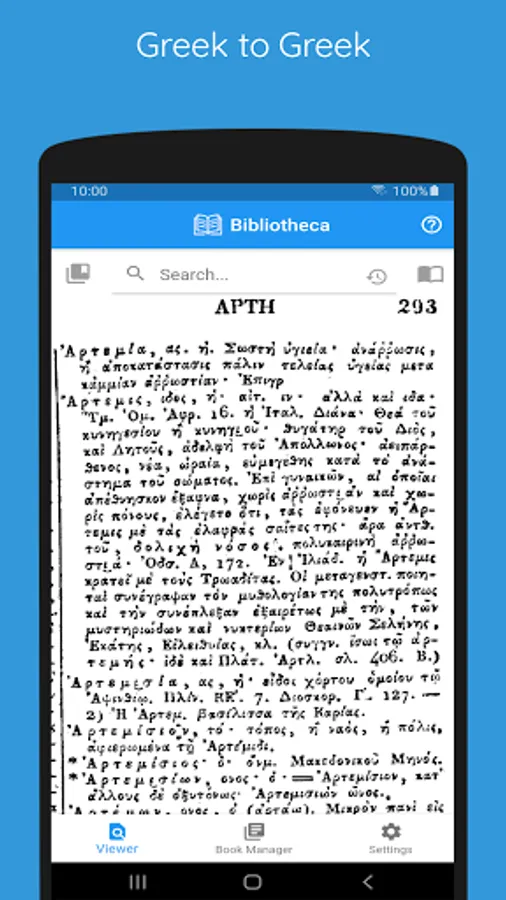 Greek to Greek
10:00
100%
Bibliotheca
Search...
ΑΡΤΗ 293
Ἀρτεμία, ας. ἡ. Σωστὴ ὑγιεία· ἀνάῤῥωσις,
ἡ ἀποκατάστασις πάλιν τελείας ὑγείας μετὰ
κᾀμμίαν ἀῤῥωστίαν· Ἐπιγρ
Ἄρτεμες, ιδος, ἡ· αἰτ. ιν· ἀλλὰ καὶ ιδα·
Ὕμ. Ὁμ. Ἀφρ. 16. ἡ Ἰταλ. Διάνα· Θεὰ τοῦ
κυνηγεσίου ἢ κυνηγιοῦ· θυγάτηρ τοῦ Διὸς,
καὶ Λητοῦς, ἀδελφὴ τοῦ Ἀπόλλωνος· ἀειπάρ-
θενος, νέα, ὡραία, εὐμεγέθης κατὰ τὸ ἀνά-
στημα τοῦ σώματος. Ἐπὶ γυναικῶν, αἱ ὁποῖαι
ἀπέθνησκον ἔξαφνα, χωρὶς ἀῤῥωστίαν καὶ χω-
ρὶς πόνους, ἐλέγετο ὅτι, τὰς ἐφόνευεν ἡ Ἄρ-
τεμες μὲ τὰς ἐλαφρὰς σαΐτες της· ἄρα ἀντὶθ.
τοῦ, δολιχὴ νόσος, πολυκαιρινὴ ἀῤῥω-
στιά· Ὀδσ. Λ, 172. Ἐν Ἰλιάδ. ἡ Ἄρτεμες
κρατεῖ μὲ τοὺς Τρωαδίτας. Οἱ μεταγενστ. ποιη-
ταὶ συνέγραψαν τὸν μυθολογίαν της πολυτρόπως
καὶ τὴν συνέπλεξαν ἐξαιρέτως μὲ τὴν, τῶν
μυστηριώδων καὶ νυκτερίων Θεαινῶν Σελήνης,
Ἑκάτης, Εἰλειθυίας, κλ. (συγγν. ἴσως τῷ ἀρ-
τεμής· ἰδὲ καὶ Πλάτ. Κρτλ. σλ. 406. Β.)
Ἀρτεμισία, ας, ἡ· εἶδος χόρτου ὁμοίου τῷ
Ἀψινθίῳ. Πλίν. ΚΕ. 7. Διοσκορ. Γ. 127. —
2) Ἡ Ἀρτεμ. βασίλισσα τῆς Καρίας.
Ἀρτεμίσιον, τό· τόπος, ἢ ναὸς, ἢ πόλις,
ἀφιερωμένα τῇ Ἀρτέμιδι.
*Ἀρτεμίσιος· ὁ· ὀνμ. Μακεδονικοῦ Μηνός.
*Ἀρτεμισίων, ονος· ὁ· = Ἀρτεμίσιον, κατ'
ἄλλους δὲ ὀξυτόνως· Ἀρτεμισιὼν ῶνος.
Ἀρτέμων, ονος, ὁ (ἀρτάω). Μικρὸν πανὶ εἰς
Viewer
Book Manager
Settings